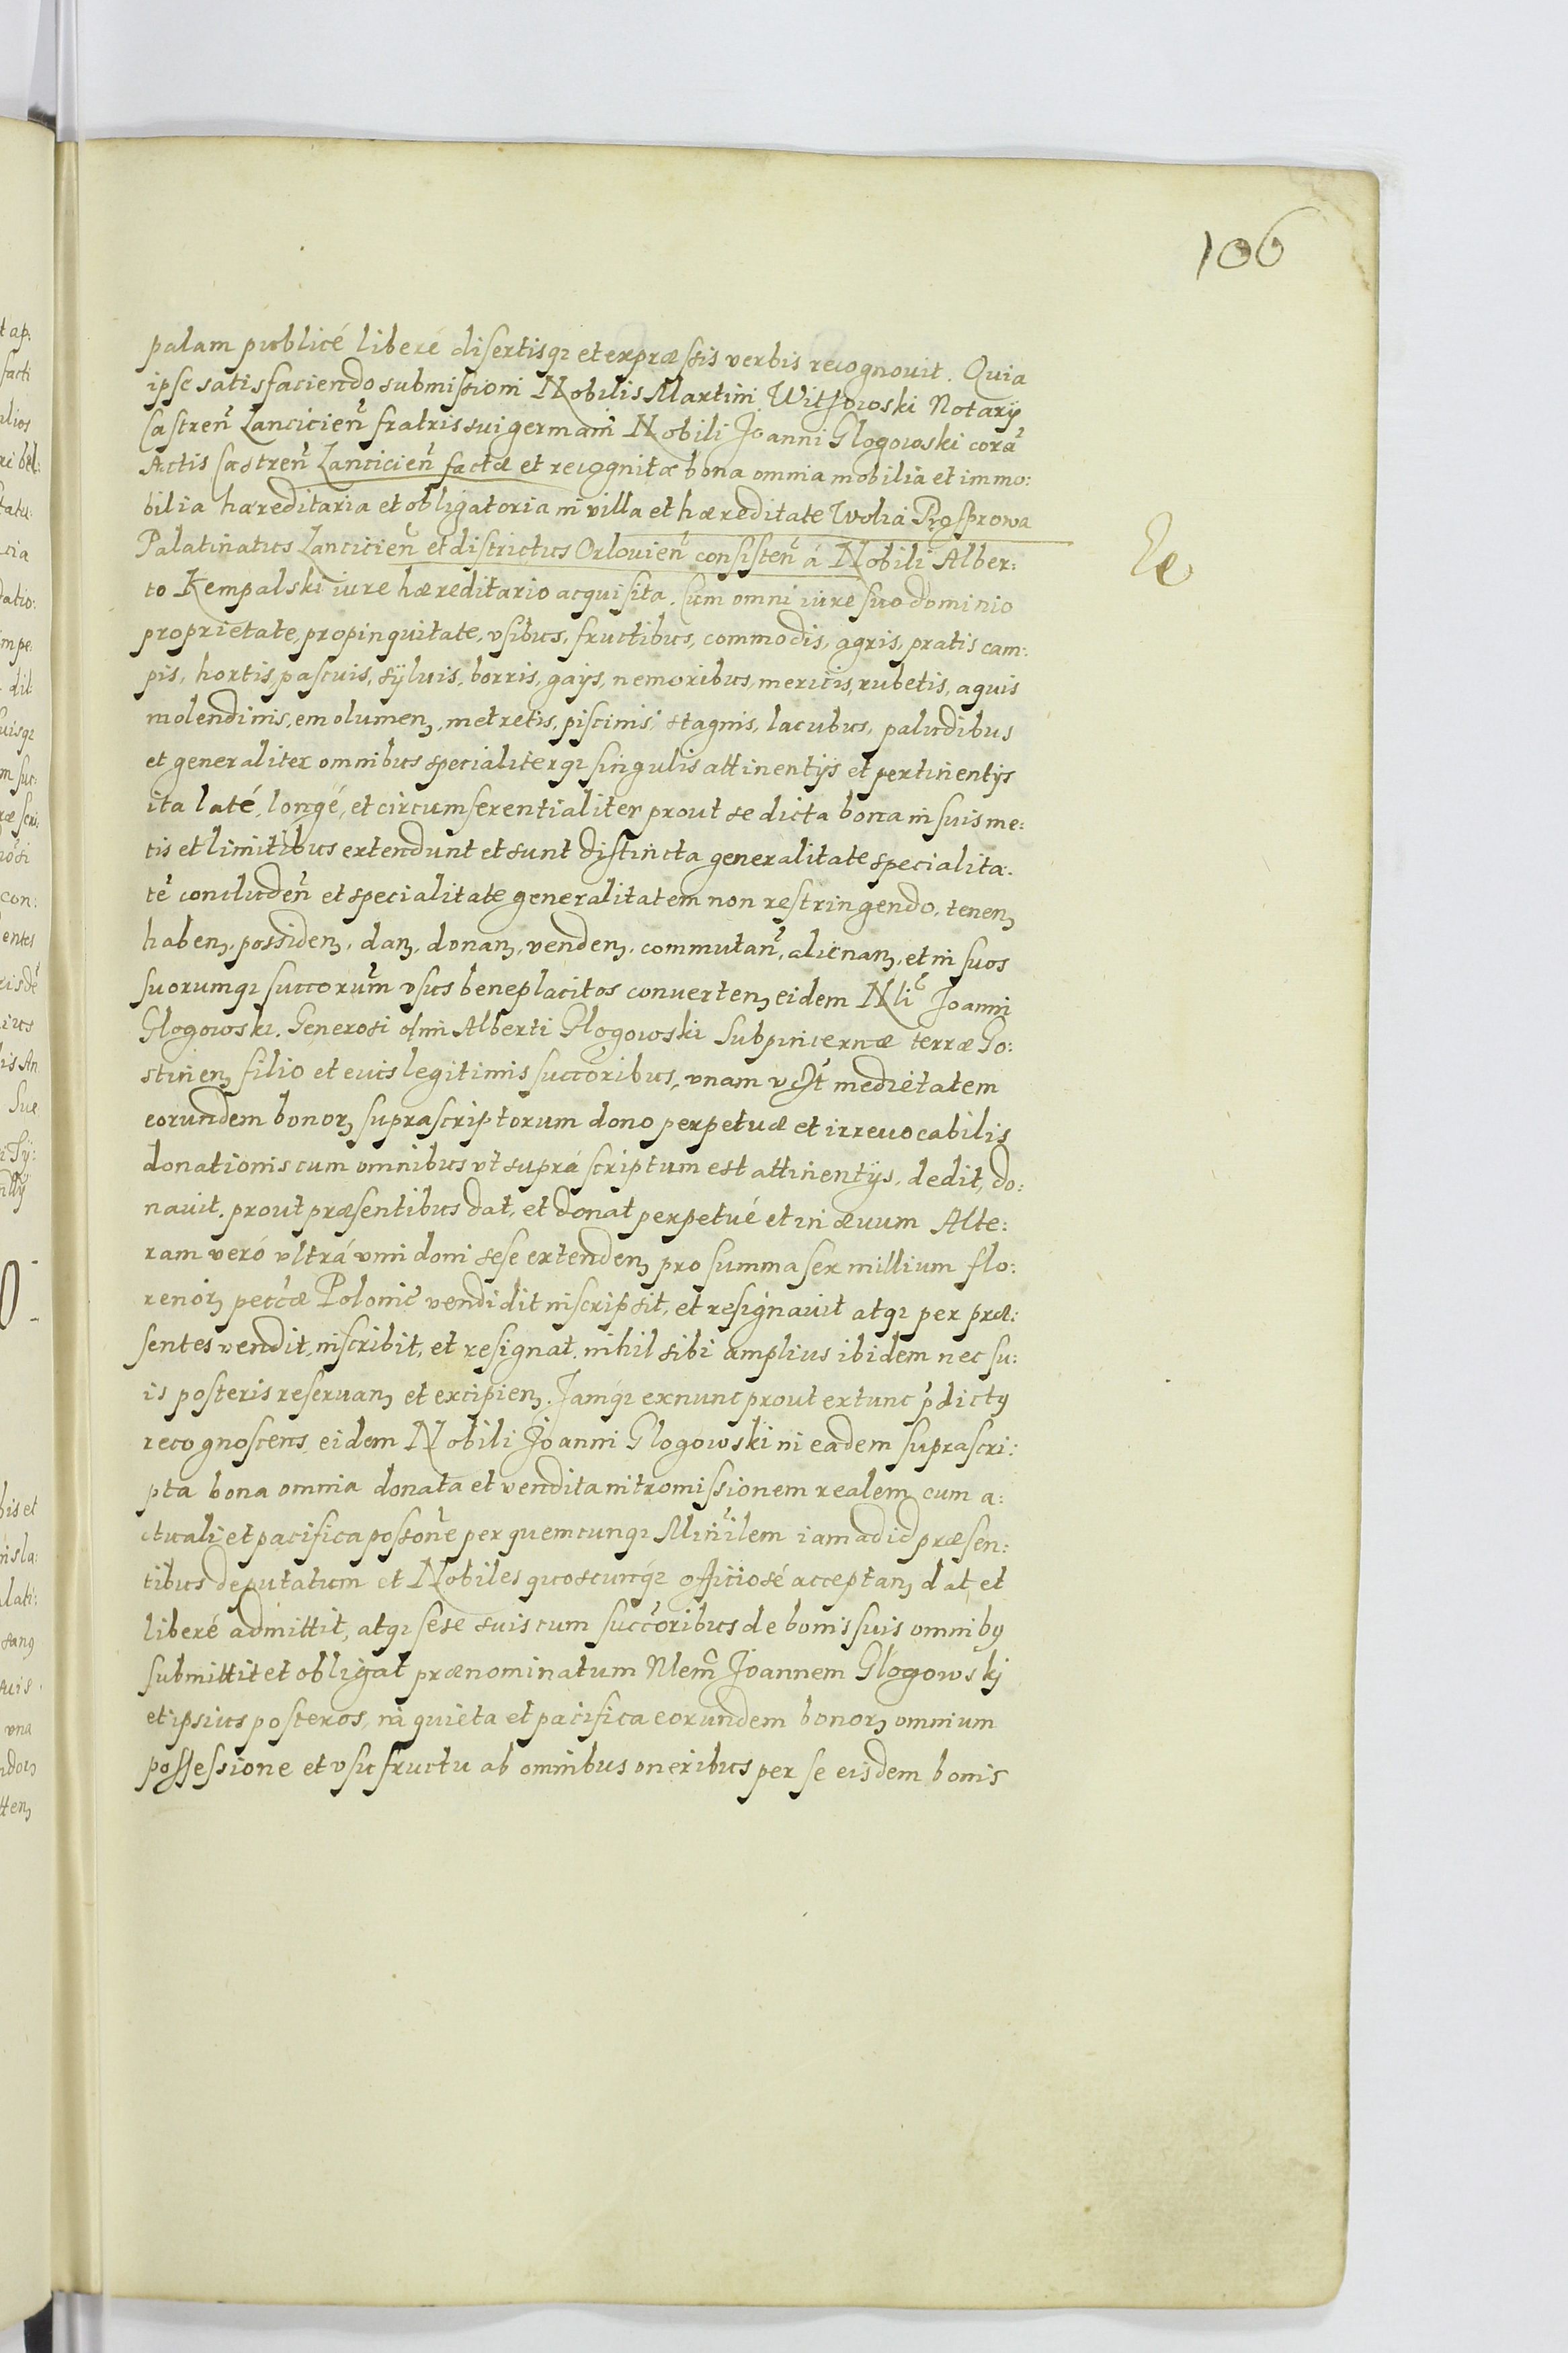 106
palam publicé liberé disertisqȝ et expræssis verbis recognovit. Quia
ipse satisfaciendo submissioni Nobilis Martini Witßowski Notarÿ
Castreñ Lancicieñ fratris sui germani Nobili Joanni Glogowski corã
Actis Castreñ Lancicieñ factæ et recognitæ bona omnia mobilia et immo:
bilia hæreditaria et obligatoria in villa et hæreditate Wolia Prosprowa
Palatinatus Lancicieñ et districtus Orlovieñ consisteñ á Nobili Alber:
to Kempalski iure hæreditario acquisita. Cum omni iure suo dominio
proprietate, propinquitate, vsibus, fructibus, commodis, agris, pratis cam:
pis, hortis, pascuis, sÿluis, borris, gaÿs, nemoribus, mericis, rubetis, aquis
molendinis, emolumenȝ, metretis, piscinis, stagnis, lacubus, paludibus
et generaliter omnibus specialiterqȝ singulis attinentÿs et pertinentÿs
ita laté, longé, et circumferentialiter prout se dicta bona in suis me:
tis et limitibus extendunt et sunt distincta generalitate specialita.
tẽ concludeñ et specialitate generalitatem non restringendo, tenenȝ
habenȝ, possidenȝ, danȝ, donanȝ, vendenȝ, commutañ, alienanȝ, et in suos
suorumqȝ succorum̃ vsus beneplacitos convertenȝ eidem Nli͂ Joanni
Glogowski. Generosi olim Alberti Glogowski Subpincernæ terræ Go:
stinenȝ filio et eius legitimis succõribus, vnam v₃t medietatem
eorundem bonorȝ suprascriptorum dono perpetuæ et irrevocabilis
donationis cum omnibus vt suprá scriptum est attinentÿs, dedit, do:
navit, prout præsentibus dat, et donat perpetué et in ævum Alte:
ram veró vltrá vim doni sese extendenȝ pro summa sex millium flo:
renorȝ pecc̃æ Polonic̃ vendidit inscripsit, et resignavit atqȝ per præ:
sentes vendit, inscribit, et resignat. nihil sibi amplius ibidem nec su:
is posteris reservanȝ et excipienȝ. Jamqȝ ex nunc prout ex tunc p̃dictꝯ
recognoscens, eidem Nobili Joanni Glogowski in eadem suprascri:
pta bona omnia donata et vendita intromissionem realem cum a:
ctuali et pacifica possõne per quemcunqȝ Minĩlem iam ad id præsen:
tibus deputatum et Nobiles quoscunqȝ officiosé acceptanȝ dat, et
liberé admittit, atqȝ sese suis cum succõribus de bonis suis omnibꝯ
submittit et obligat prænominatum Nlem̃ Joannem Glogowskj
et ipsius posteros, in quieta et pacifica eorundem bonorȝ omnium
possessione et vsufructu ab omnibus oneribus per se eisdem bonis